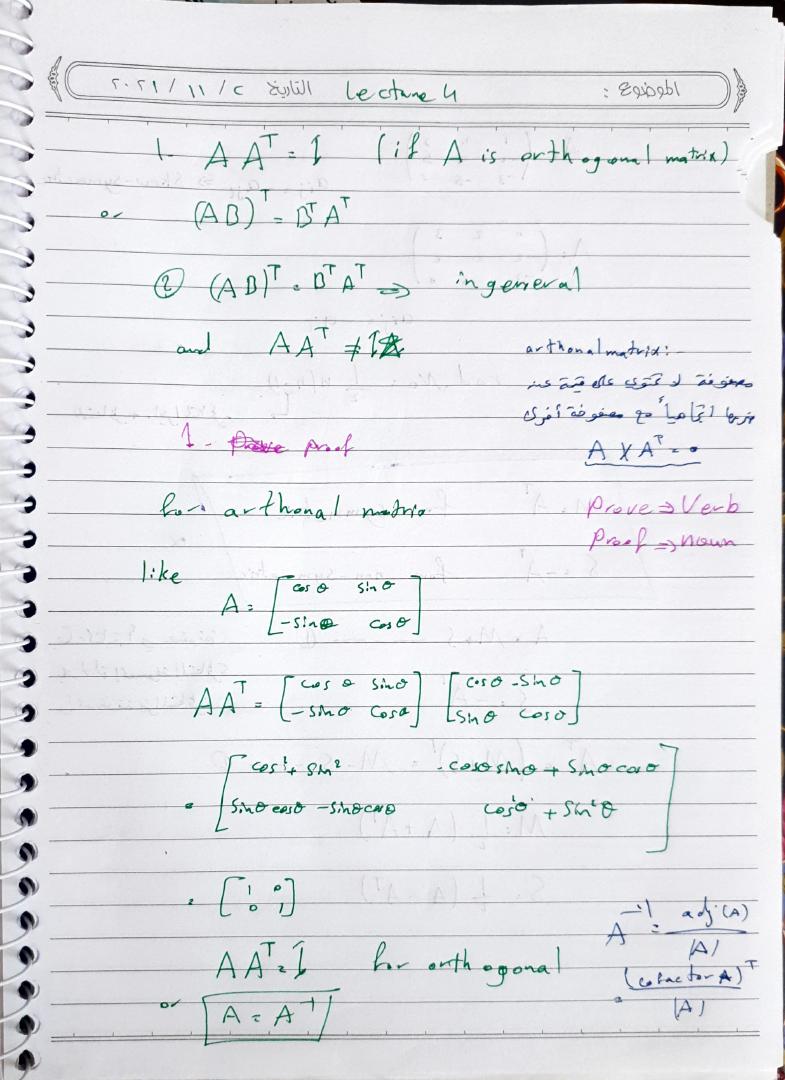 الموضوع : Lecture 4 التاريخ ٢٠٢١ / ١١ / ٢
1- A Aᵀ = I (if A is orthogonal matrix)
or (AB)ᵀ = Bᵀ Aᵀ
② (AB)ᵀ = Bᵀ Aᵀ ⇒ in general
and A Aᵀ ≠ I
arthonal matrix:-
مصفوفة لا تحتوي على قيمة عند
ضربها اتجاهياً مع مصفوفة أخرى
A X Aᵀ = 0
1- proof
for arthonal matrix
Prove ⇒ Verb
Proof ⇒ noun
like
A = [cos θ sin θ
-sin θ cos θ]
A Aᵀ = [cos θ sin θ [cos θ -sin θ
-sin θ cos θ] sin θ cos θ]
= [cos² + sin² -cosθ sinθ + sinθ cosθ
sinθ cosθ - sinθ cosθ cos²θ + sin²θ]
= [1 0
0 1]
A Aᵀ = I for orthogonal
or A = A⁻¹
A⁻¹ = adj(A) / |A|
= (cofactor A)ᵀ / |A|